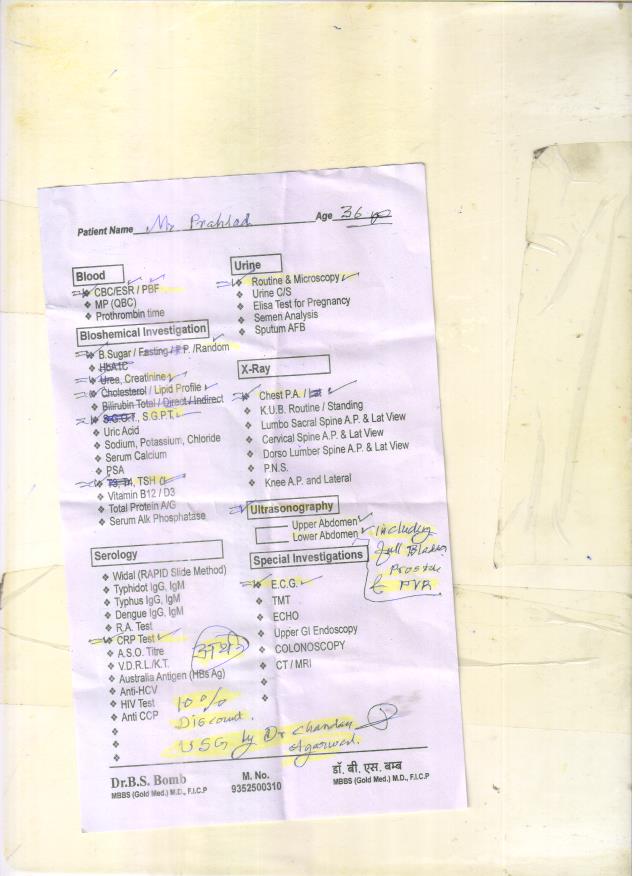 Patient Name Mr Prahlad Age 36 yr
Blood
CBC/ESR / PBF
MP (QBC)
Prothrombin time
Bioshemical Investigation
B.Sugar / Fasting / P.P. /Random
HbA1C
Urea, Creatinine
Cholesterol / Lipid Profile
Bilirubin Total / Direct / Indirect
S.G.O.T., S.G.P.T.
Uric Acid
Sodium, Potassium, Chloride
Serum Calcium
PSA
T3, T4, TSH
Vitamin B12 / D3
Total Protein A/G
Serum Alk Phosphatase
Serology
Widal (RAPID Slide Method)
Typhidot IgG, IgM
Typhus IgG, IgM
Dengue IgG, IgM
R.A. Test
CRP Test
A.S.O. Titre
V.D.R.L./K.T.
Australia Antigen (HBs Ag)
Anti-HCV
HIV Test
Anti CCP
Urine
Routine & Microscopy
Urine C/S
Elisa Test for Pregnancy
Semen Analysis
Sputum AFB
X-Ray
Chest P.A. /
K.U.B. Routine / Standing
Lumbo Sacral Spine A.P. & Lat View
Cervical Spine A.P. & Lat View
Dorso Lumber Spine A.P. & Lat View
P.N.S.
Knee A.P. and Lateral
Ultrasonography
Upper Abdomen
Lower Abdomen
including
full Bladder
Prostate
& PVR
Special Investigations
E.C.G.
TMT
ECHO
Upper GI Endoscopy
COLONOSCOPY
CT / MRI
10%
Discount.
USG by Dr Chandan
Agarwal.
Dr.B.S. Bomb
MBBS (Gold Med.) M.D., F.I.C.P
M. No.
9352500310
डॉ. बी. एस. बम्ब
MBBS (Gold Med.) M.D., F.I.C.P